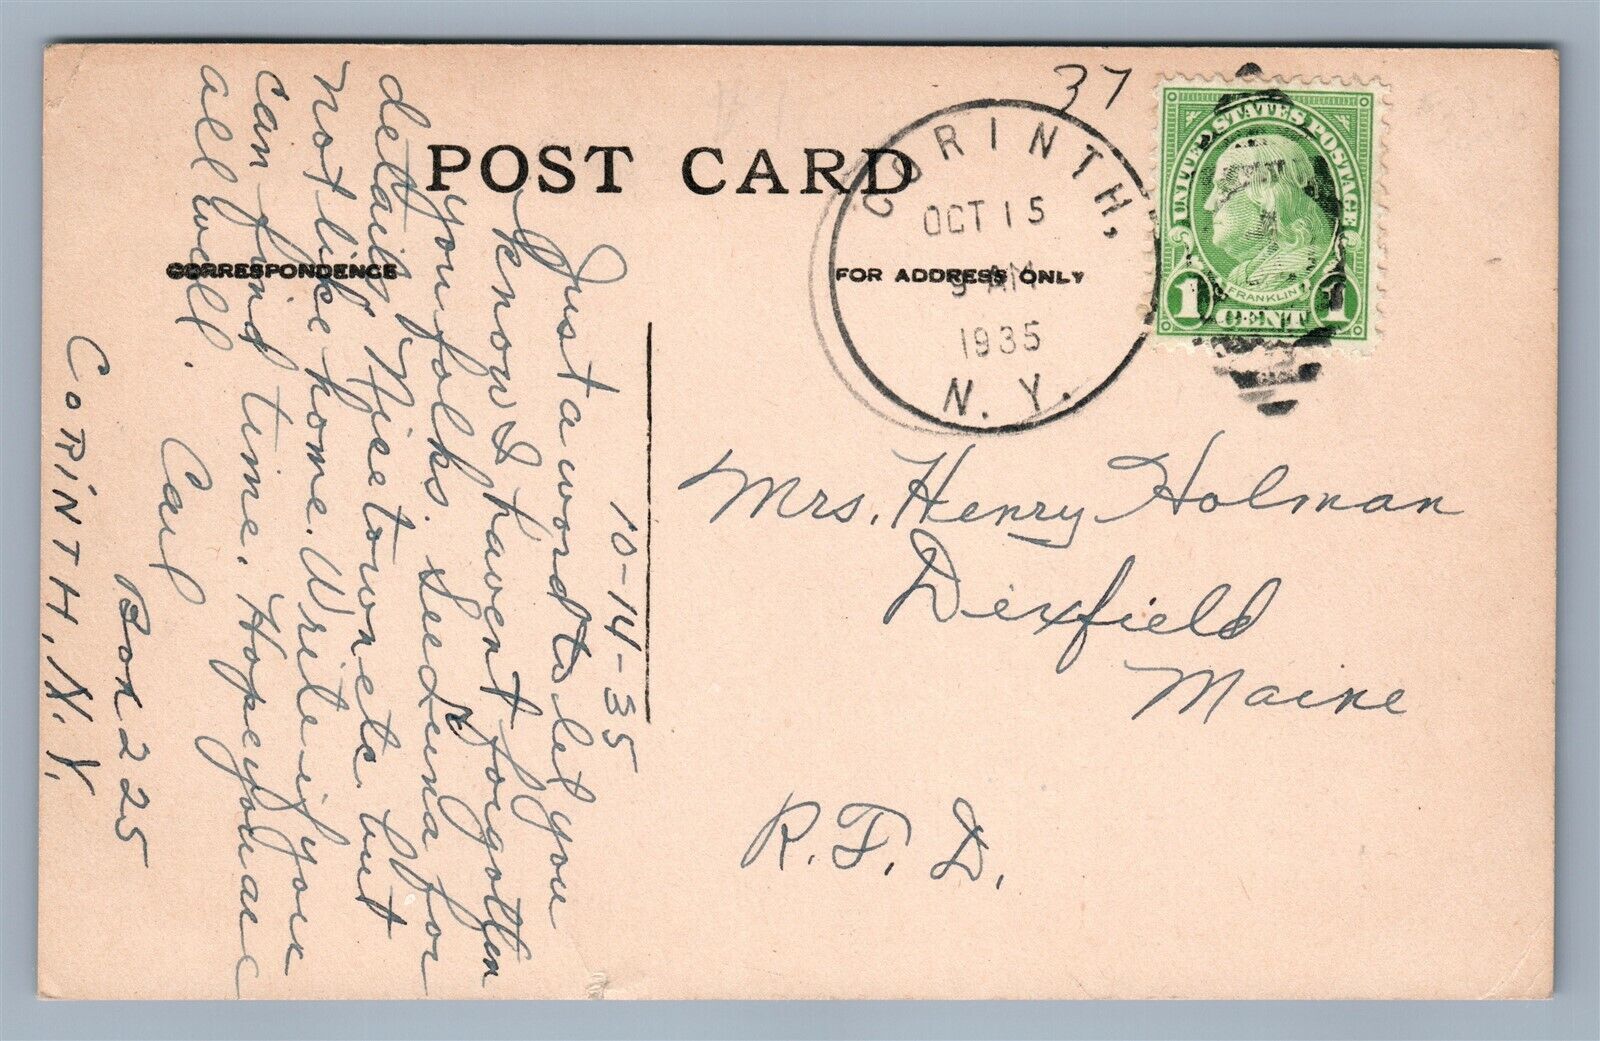 37
POST CARD
CORRESPONDENCE
FOR ADDRESS ONLY
CORINTH,
OCT 15
9 AM
1935
N. Y.
UNITED STATES POSTAGE
FRANKLIN
1 CENT 1
10-14-35
Just a word to let you
know I havent forgotten
you folks. See Lena for
details. Nice town etc. but
not like home. Write if you
can find time. Hope you are
all well.
Carl
Box 225
CORINTH, N.Y.
Mrs. Henry Holman
Dixfield
Maine
R.F.D.